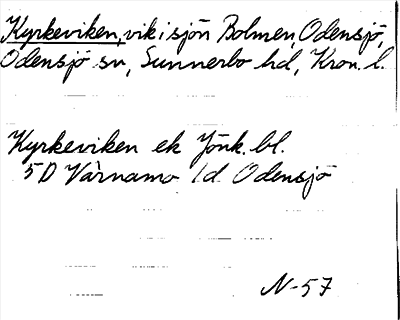 Kyrkeviken, vik i sjön Bolmen, Odensjö,
Odensjö sn, Sunnerbo hd, Kron. l.
Kyrkeviken ek Jönk. bl.
5D Värnamo 1d Odensjö
N-57